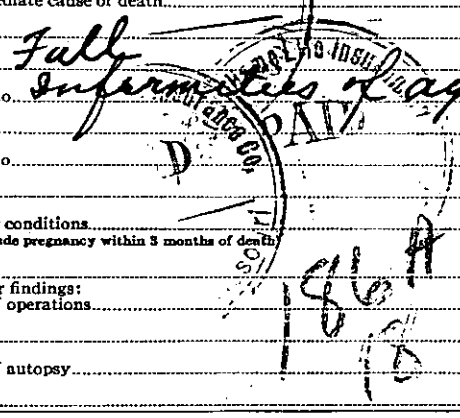 ediate cause of death
Fall
Infirmities of ag
o
o
conditions
de pregnancy within 3 months of death
r findings:
operations
f autopsy
Insurance Co.
PAID
D
souri
186 A
18